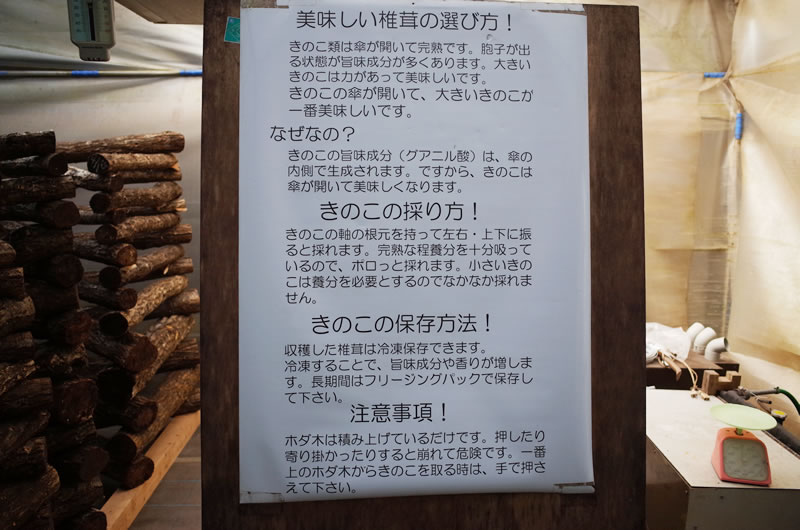 美味しい椎茸の選び方！
きのこ類は傘が開いて完熟です。胞子が出
る状態が旨味成分が多くあります。大きい
きのこは力があって美味しいです。
きのこの傘が開いて、大きいきのこが
一番美味しいです。
なぜなの？
きのこの旨味成分（グアニル酸）は、傘の
内側で生成されます。ですから、きのこは
傘が開いて美味しくなります。
きのこの採り方！
きのこの軸の根元を持って左右・上下に振
ると採れます。完熟な程養分を十分吸って
いるので、ボロっと採れます。小さいきの
こは養分を必要とするのでなかなか採れま
せん。
きのこの保存方法！
収穫した椎茸は冷凍保存できます。
冷凍することで、旨味成分や香りが増しま
す。長期間はフリージングパックで保存し
て下さい。
注意事項！
ホダ木は積み上げているだけです。押したり
寄り掛かったりすると崩れて危険です。一番
上のホダ木からきのこを取る時は、手で押さ
えて下さい。